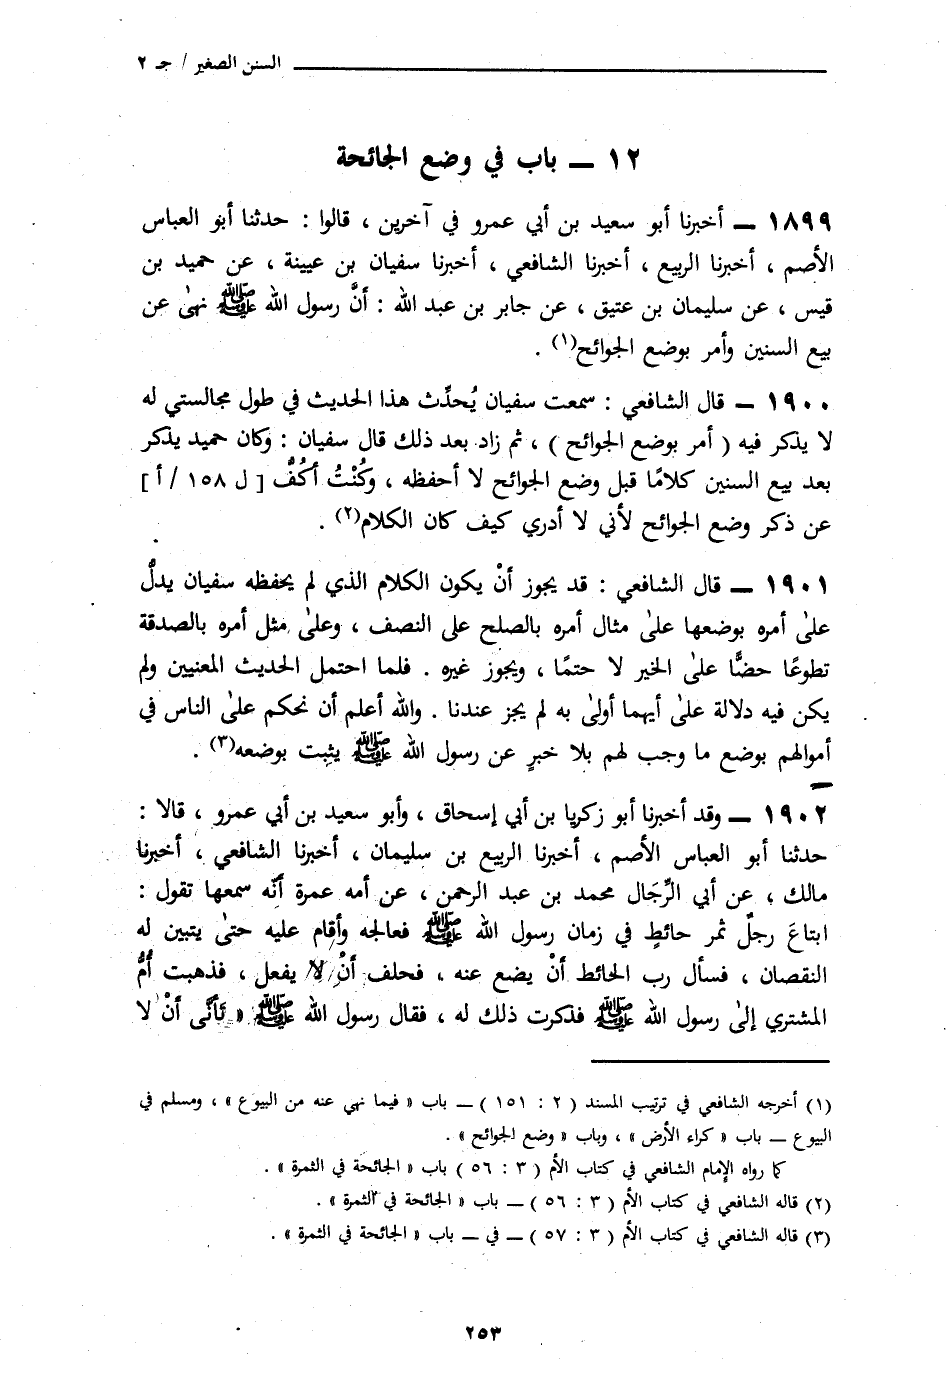 السنن الصغير / جـ ٢
١٢ ــ باب في وضع الجائحة
١٨٩٩ ــ أخبرنا أبو سعيد بن أبي عمرو في آخرين ، قالوا : حدثنا أبو العباس
الأصم ، أخبرنا الربيع ، أخبرنا الشافعي ، أخبرنا سفيان بن عيينة ، عن حميد بن
قيس ، عن سليمان بن عتيق ، عن جابر بن عبد الله : أنَّ رسول الله ﷺ نهىٰ عن
بيع السنين وأمر بوضع الجوائح(١) .
١٩٠٠ ــ قال الشافعي : سمعت سفيان يُحدِّث هذا الحديث في طول مجالستي له
لا يذكر فيه ( أمر بوضع الجوائح ) ، ثم زاد بعد ذلك قال سفيان : وكان حميد يذكر
بعد بيع السنين كلامًا قبل وضع الجوائح لا أحفظه ، وكُنْتُ أكُفُّ [ ل ١٥٨ / أ ]
عن ذكر وضع الجوائح لأني لا أدري كيف كان الكلام(٢) .
١٩٠١ ــ قال الشافعي : قد يجوز أنْ يكون الكلام الذي لم يحفظه سفيان يدلُّ
علىٰ أمره بوضعها علىٰ مثال أمره بالصلح على النصف ، وعلىٰ مثل أمره بالصدقة
تطوعًا حضًّا علىٰ الخير لا حتمًا ، ويجوز غيره . فلما احتمل الحديث المعنيين ولم
يكن فيه دلالة علىٰ أيهما أولىٰ به لم يجز عندنا . والله أعلم أن نحكم علىٰ الناس في
أموالهم بوضع ما وجب لهم بلا خبرٍ عن رسول الله ﷺ يثبت بوضعه(٣) .
١٩٠٢ ــ وقد أخبرنا أبو زكريا بن أبي إسحاق ، وأبو سعيد بن أبي عمرو ، قالا :
حدثنا أبو العباس الأصم ، أخبرنا الربيع بن سليمان ، أخبرنا الشافعي ، أخبرنا
مالك ، عن أبي الرِّجَال محمد بن عبد الرحمن ، عن أمه عمرة أنَّه سمعها تقول :
ابتاعَ رجلٌ ثمر حائطٍ في زمان رسول الله ﷺ فعالجه وأقام عليه حتىٰ يتبين له
النقصان ، فسأل رب الحائط أنْ يضع عنه ، فحلف أنْ لا يفعل ، فذهبت أمُّ
المشتري إلىٰ رسول الله ﷺ فذكرت ذلك له ، فقال رسول الله ﷺ « تَأنَّى أنْ لا
(١) أخرجه الشافعي في ترتيب المسند ( ٢ : ١٥١ ) ــ باب « فيما نهي عنه من البيوع » ، ومسلم في
البيوع ــ باب « كراء الأرض » ، وباب « وضع الجوائح » .
كما رواه الإمام الشافعي في كتاب الأم ( ٣ : ٥٦ ) باب « الجائحة في الثمرة » .
(٢) قاله الشافعي في كتاب الأم ( ٣ : ٥٦ ) ــ باب « الجائحة في الثمرة » .
(٣) قاله الشافعي في كتاب الأم ( ٣ : ٥٧ ) ــ في ــ باب « الجائحة في الثمرة » .
٢٥٣